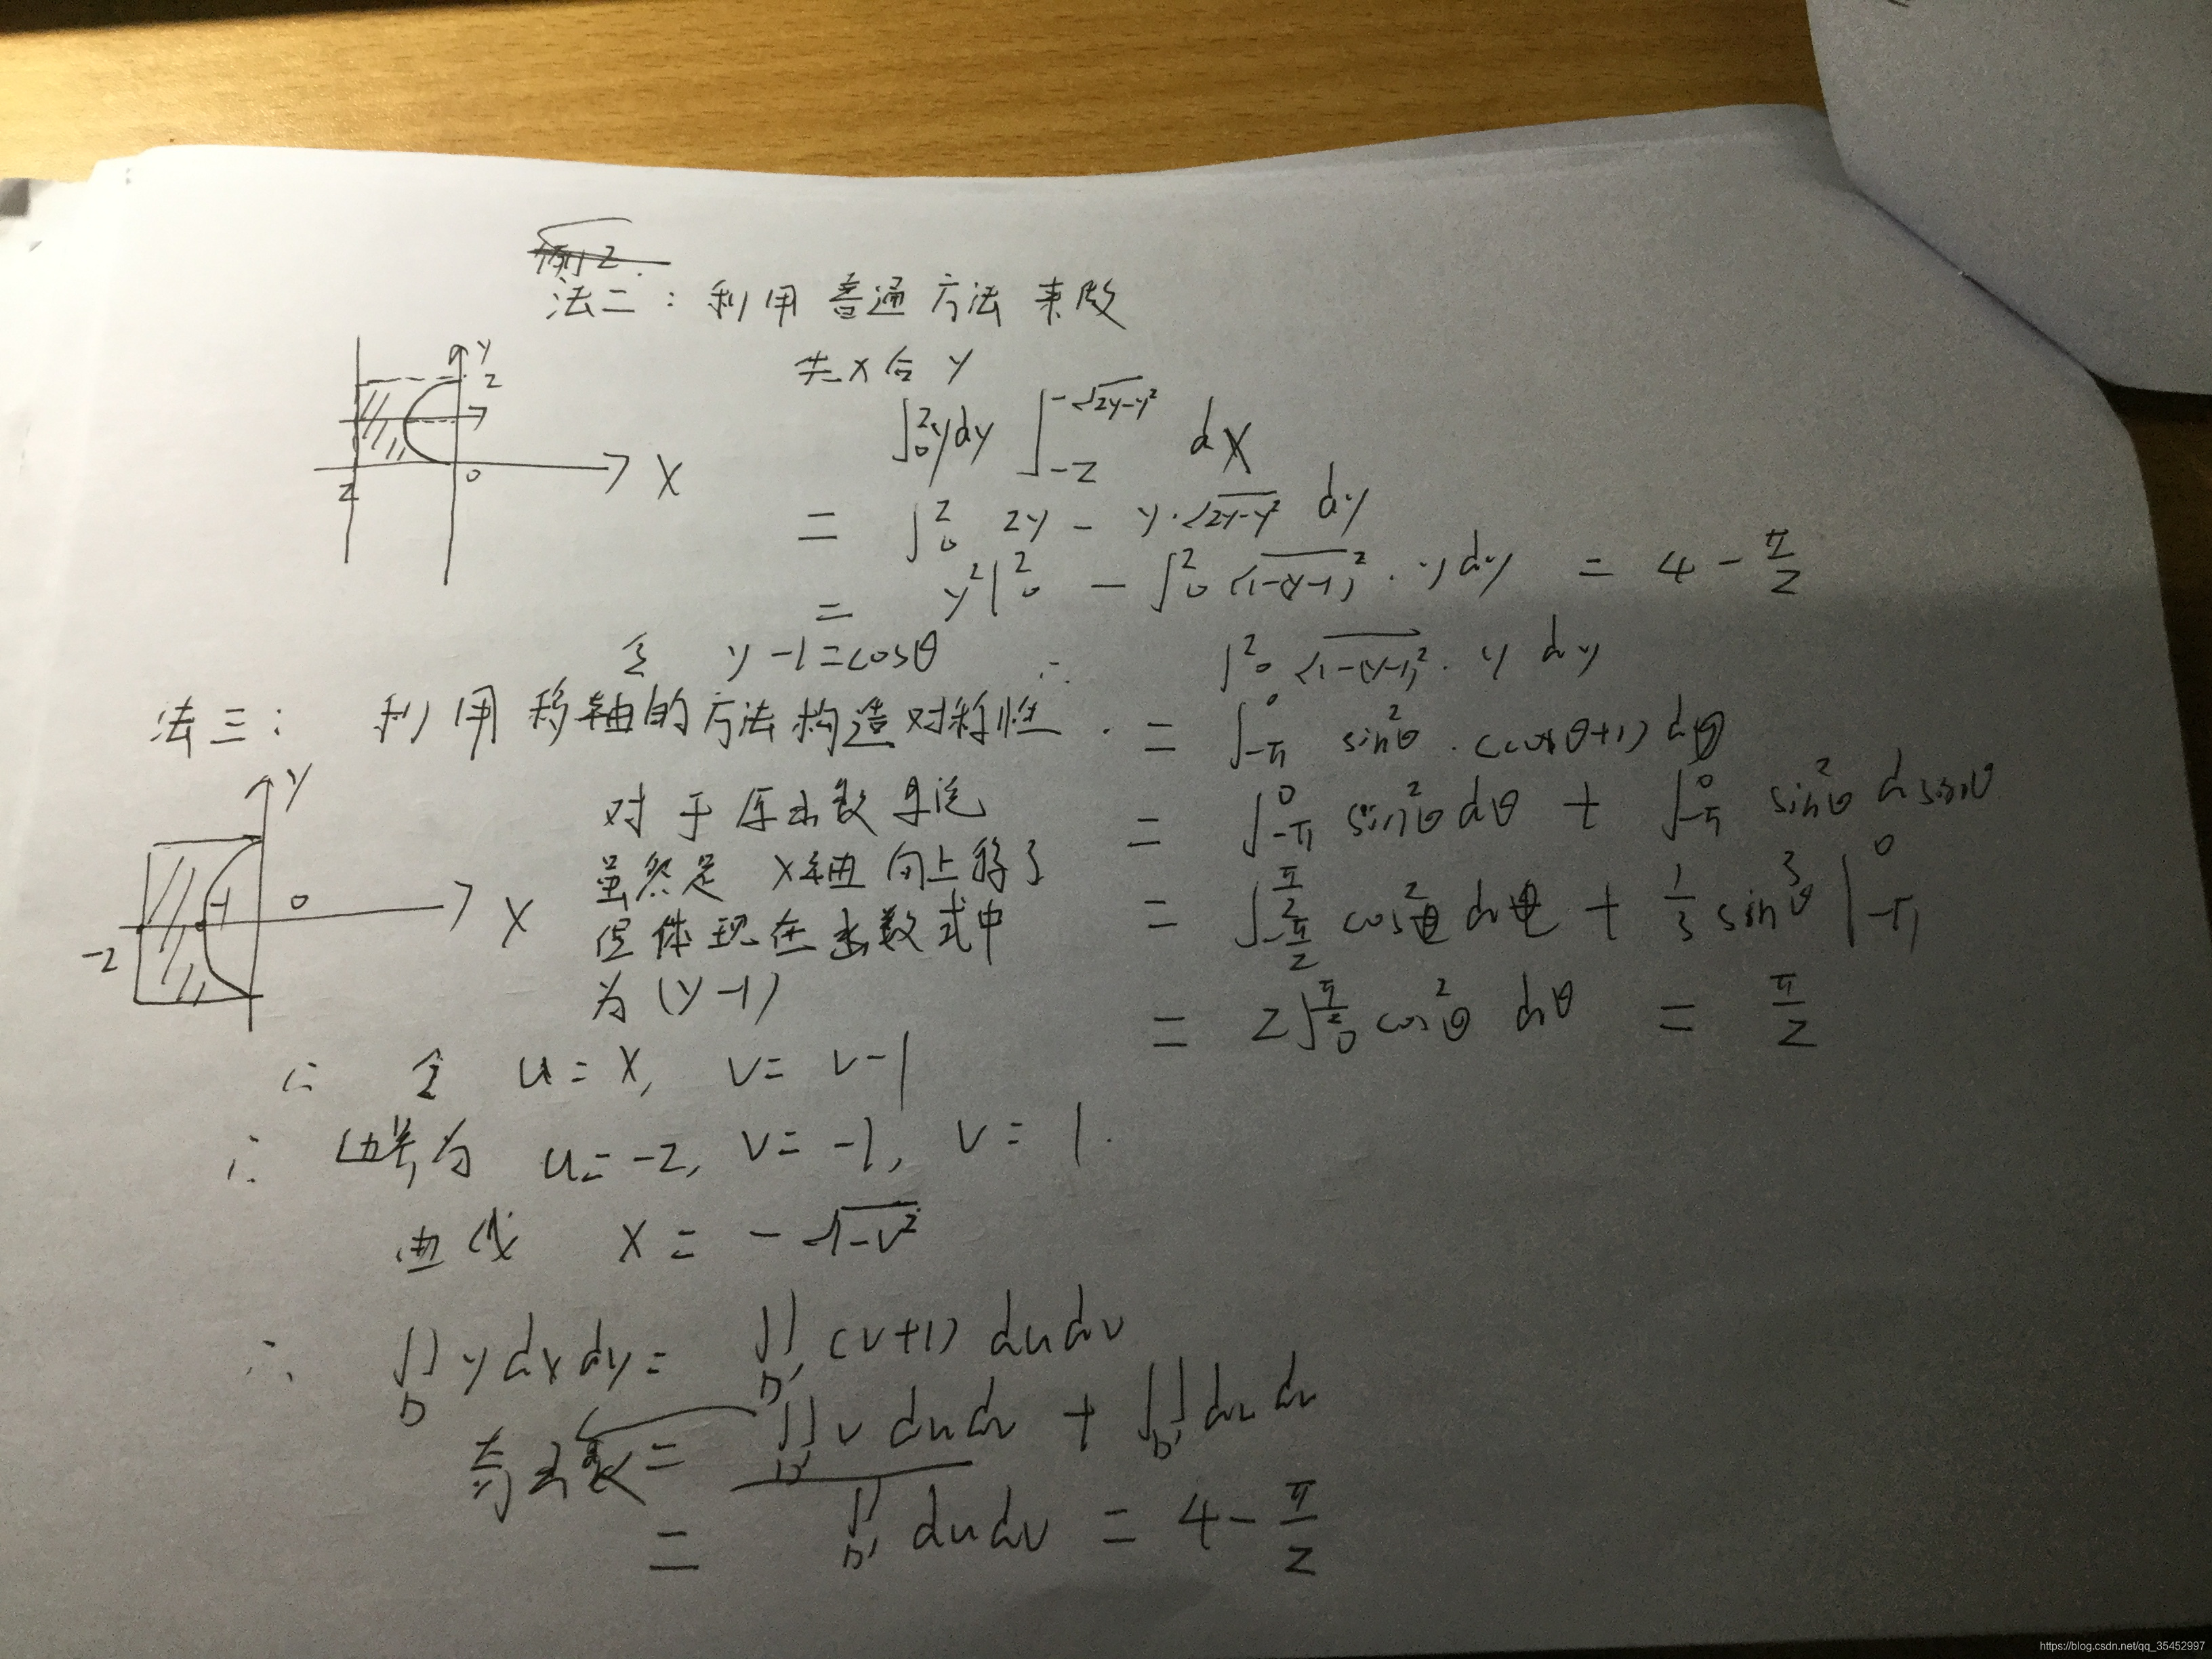 例2.
法二:利用普通方法来做
y
2
0
2
X
先x后y
∫₀² ydy ∫₋₂^{-√(2y-y²)} dX
= ∫₀² 2y - y·√(2y-y²) dy
= y²|₀² - ∫₀² √(1-(y-1)²)·y dy = 4 - π/2
令 y-1=cosθ ∴ ∫₀² √(1-(y-1)²)·y dy
= ∫₋π⁰ sin²θ·(cosθ+1) dθ
= ∫₋π⁰ sin²θ dθ + ∫₋π⁰ sin²θ dsinθ
= ∫_{-π/2}^{π/2} cos²θ dθ + 1/3 sin³θ |₋π⁰
= 2∫₀^{π/2} cos²θ dθ = π/2
法三:利用移轴的方法构造对称性.
y
-1
0
-2
X
对于原函数来说
虽然是 x轴向上移了
但体现在函数式中
为(y-1)
∴ 令 u=x, v=v-1
∴ 边界为 u=-2, v=-1, v=1.
曲线 x=-√(1-v²)
∴ ∬_D ydxdy= ∬_D' (v+1) dudv
奇函数 = ∬_D' v dudv + ∬_D' dudv
= ∬_D' dudv = 4 - π/2
https://blog.csdn.net/qq_35452997